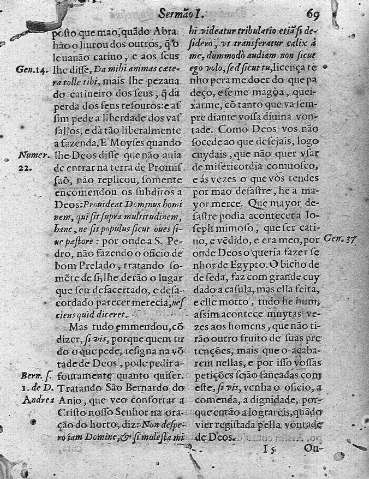 Sermão I. 69
posto que mao, quãdo Abra
hão o liurou dos outros, q̃ o
leuauão catino, e aos seus
Gen. 14. lhe disse, Da mihi animas cæte
ra tolle tibi, mais lhe pezaua
do catiueiro dos seus, q̃ da
perda dos seus tesouros: e as
sim pede a liberdade dos vas
sallos, e dà tão liberalmente
a fazenda. E Moyses quando
Numer. lhe Deos disse que não auia
22. de entrar na terra de Promis
saõ, não replicou, somente
encomendou os subditos a
Deos: Prouideat Dominus homi
nem, qui sit supra multitudinem,
hanc, ne sit populus sicut oues si-
ne pastore: por onde a S. Pe-
dro, não fazendo o officio de
bom Prelado, tratando so-
mẽte de si, lhe derão o lugar
que seu desacertado, e desa-
cordado parecer merecia, nes
ciens quid diceret.
Mas tudo emmendou, cõ
dizer, si vis, porque quem tu
do o que pede, resigna na võ
tade de Deos, pode pedir a-
Bern. s. foutamente quanto quiser.
1. de D. Tratando São Bernardo do
Andrea Anjo, que veo confortar a
Cristo nosso Senhor na ora-
ção do horto, diz: Non despe-
ro iam Domine, & si molesta mi
hi videatur tribulatio etiã si de-
sidero, vt transferatur calix à
me, dommodò audiam non sicut
ego volo, sed sicut tu, licença te
nho pera me doer do que pa
deço, e se me magoa, quei-
xarme, cõ tanto que va sem-
pre diante vossa diuina von-
tade. Como Deos vos não
socede ao que desejais, logo
cuydais, que não quer vsar
de misericordia comuosco,
e ás vezes o que vós tendes
por mao desastre, he a ma-
yor merce. Que mayor de-
sastre podia acontecer a Io-
seph mimoso, que ser cati-
uo, e vẽdido, e era meo, por Gen. 37
onde Deos o queria fazer se
nhor de Egypto. O bicho da
de seda, faz com grande cuy
dado a casula, mas ella feita,
e elle morto, tudo he hum,
assim acontece muytas ve-
zes aos homens, que não ti-
rão outro fruito de suas pre
tenções, mais que o acaba-
rem nellas, e por isso vossas
petições sejão lançadas com
este, si vis, venha o officio, a
comenda, a dignidade, por-
que então a lograreis, quãdo
vier registada pella võtade
de Deos.
I 5 Ou-